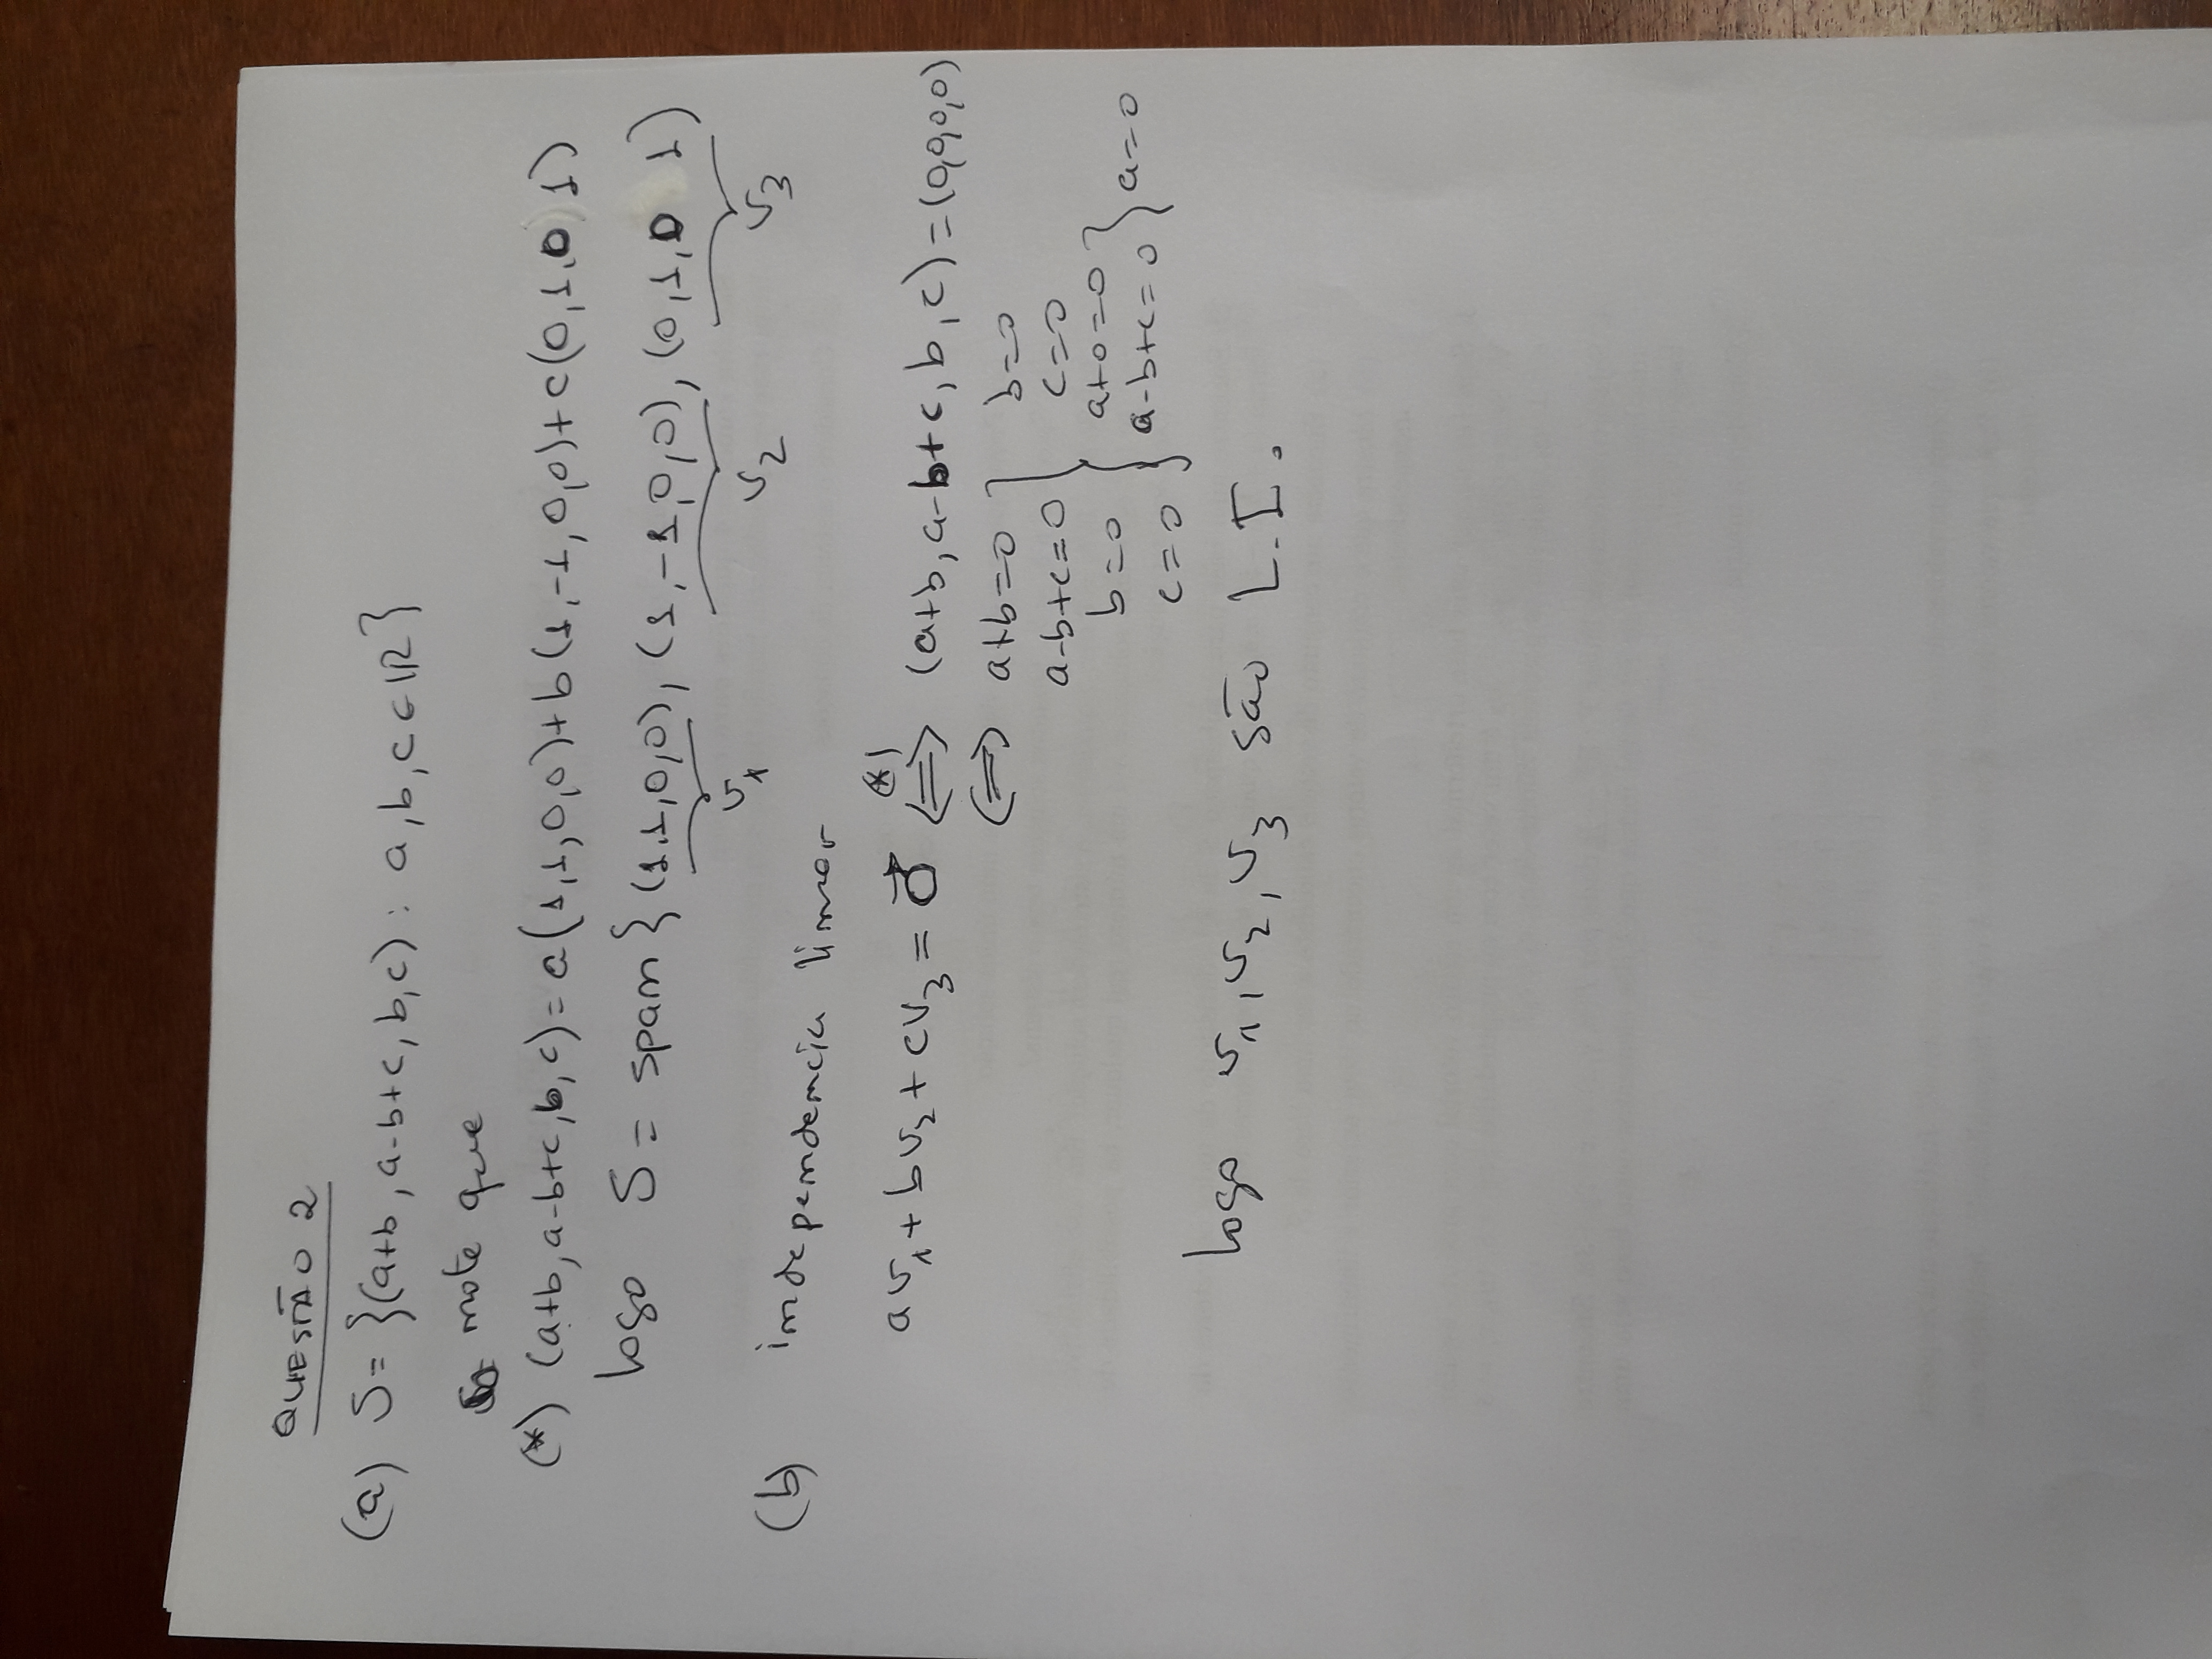 QUESTÃO 2
(a) S = {(a+b, a-b+c, b, c) : a, b, c ∈ IR}
note que
(*) (a+b, a-b+c, b, c) = a(1,1,0,0)+b(1,-1,0,0)+c(0,1,0,1)
logo S = span {(1,1,0,0), (1,-1,0,0), (0,1,0,1)
v1 v2 v3
(b) independencia linear
av1 + bv2 + cv3 = 0⃗ (*) ⇔ (a+b, a-b+c, b, c) = (0,0,0,0)
⇔ a+b=0 b=0
a-b+c=0 c=0
b=0 a+0=0
c=0 a-b+c=0 } a=0
logo v1, v2, v3 são L.I.